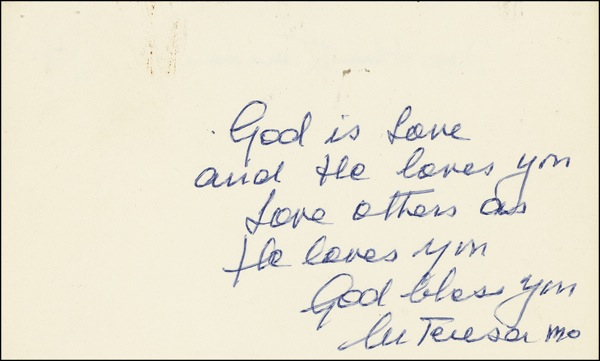 God is Love
and He loves you
Love others as
He loves you
God bless you
M Teresa mc